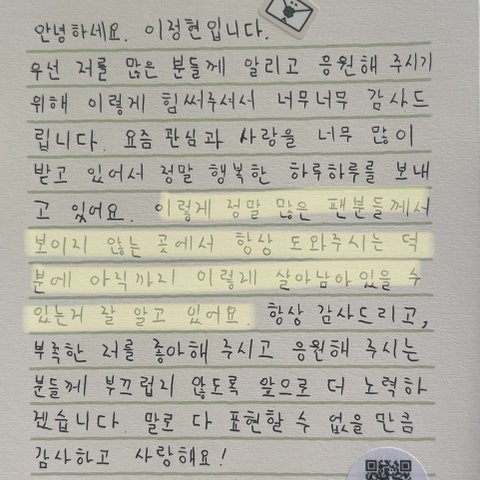 안녕하세요. 이정현입니다.
우선 저를 많은 분들께 알리고 응원해 주시기
위해 이렇게 힘써주셔서 너무너무 감사드
립니다. 요즘 관심과 사랑을 너무 많이
받고 있어서 정말 행복한 하루하루를 보내
고 있어요. 이렇게 정말 많은 팬분들께서
보이지 않는 곳에서 항상 도와주시는 덕
분에 아직까지 이렇게 살아남아있을 수
있는거 잘 알고 있어요. 항상 감사드리고,
부족한 저를 좋아해 주시고 응원해 주시는
분들께 부끄럽지 않도록 앞으로 더 노력하
겠습니다. 말로 다 표현할 수 없을 만큼
감사하고 사랑해요!